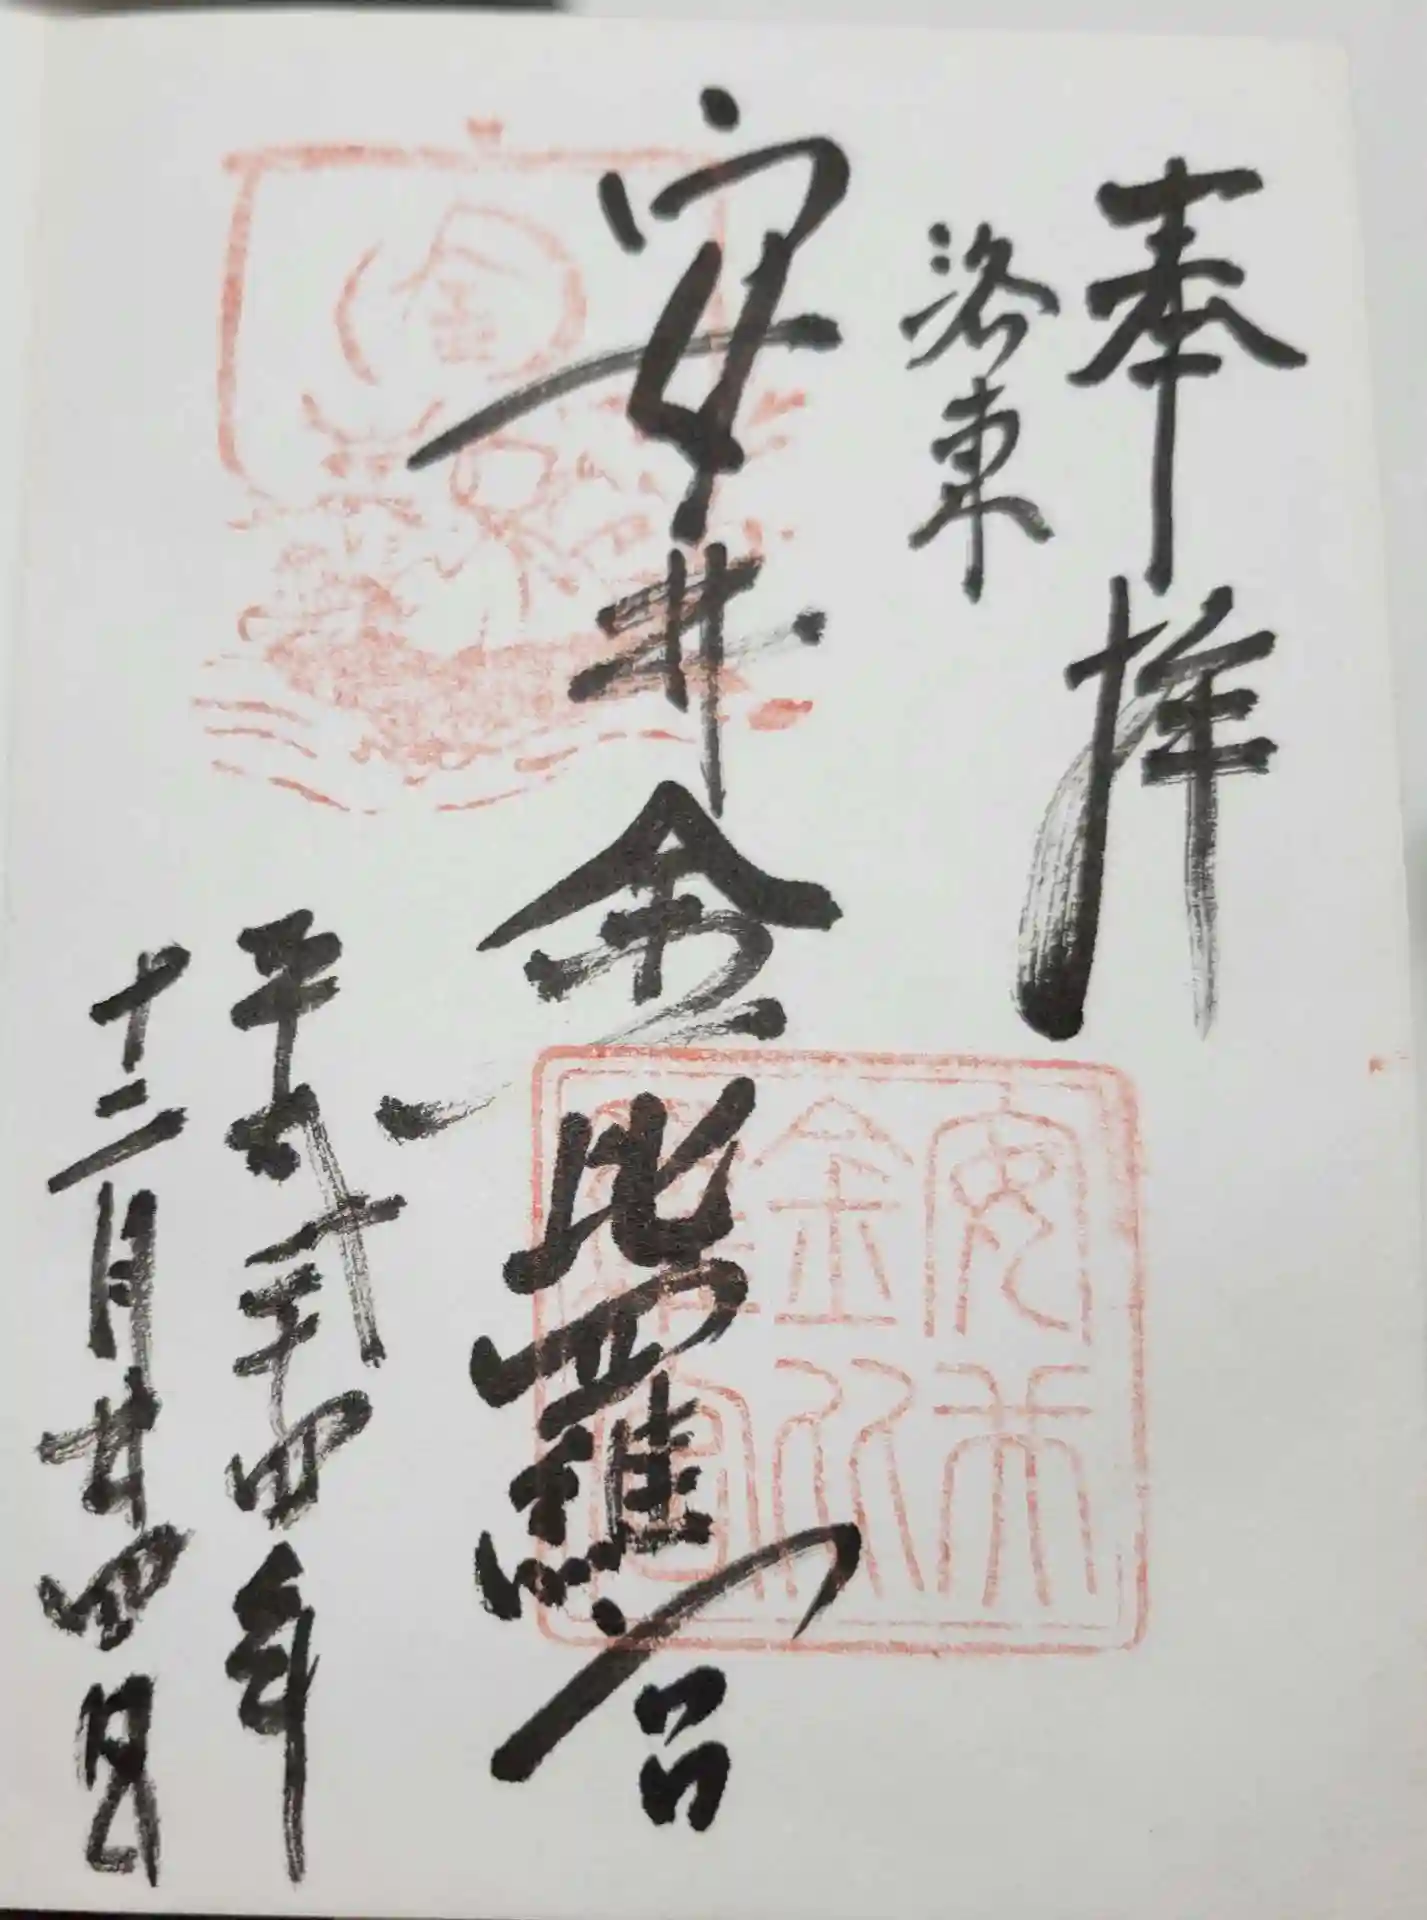 奉拝
洛東
安井金比羅宮
平成二十四年
十二月廿四日
安井
金比
羅宮
金